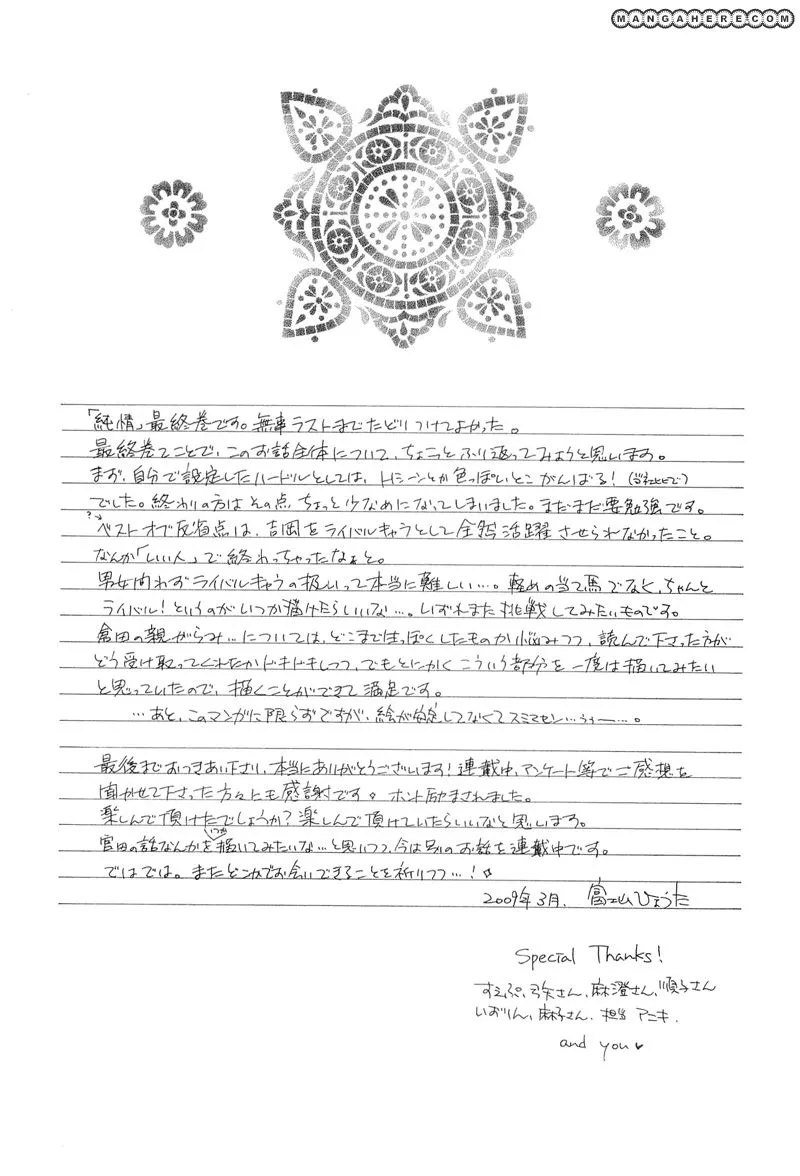 MANGAHERE.COM
「純情」最終巻です。無事ラストまでたどりつけてよかった。
最終巻てことで、このお話全体について、ちょこっとふり返ってみようと思います。
まず、自分で設定したハードルとしては、Hシーンとか色っぽいとこがんばる!(当社比で)
でした。終わりの方はその点、ちょっと少なめになってしまいました。まだまだ要勉強です。
ベストオブ反省点は、吉岡をライバルキャラとして全然活躍させられなかったこと。
なんか「いい人」で終わっちゃったなぁと。
男女問わずライバルキャラの扱いって本当に難しい…。軽めの当て馬でなく、ちゃんと
ライバル!というのがいつか描けたらいいな…。いずれまた挑戦してみたいものです。
倉田の親がらみ…については、どこまではっぽくしたものか悩みつつ、読んで下さった方が
どう受け取ってくれたかドキドキしつつ、でもとにかくこういう部分を一度は描いてみたい
と思っていたので、描くことができて満足です。
…あと、このマンガに限らずですが、絵が安定してなくてスミマセン…うぅー…。
最後までおつきあい下さり、本当にありがとうございます!連載中、アンケート等でご感想を
聞かせて下さった方々にも感謝です。ホント励まされました。
楽しんで頂けたでしょうか?楽しんで頂けていたらいいなと思います。
宮田の話なんかをいつか描いてみたいな…と思いつつ、今は別のお話を連載中です。
ではでは。またどこかでお会いできることを祈りつつ…!
2009年3月. 富士山ひょうた
Special Thanks!
すえぷ、弓矢さん、麻澄さん、順子さん
いおりん、麻子さん、担当アニキ.
and you ♥